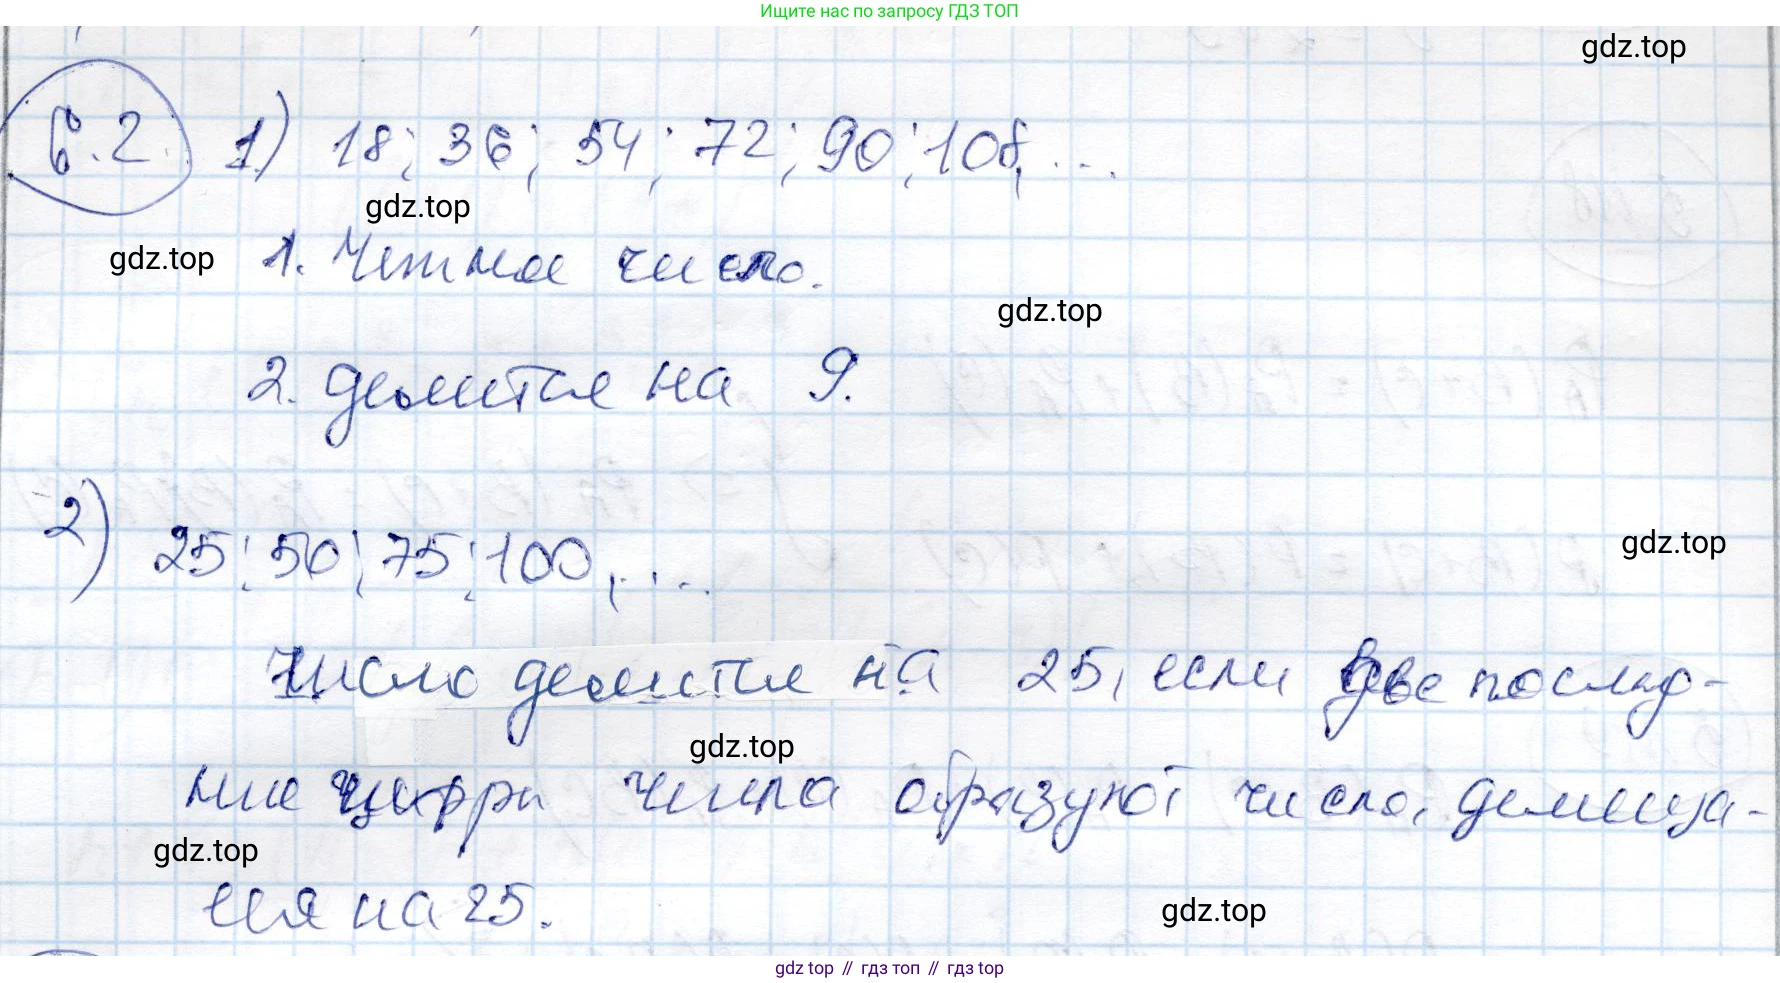 Ищите нас по запросу ГДЗ ТОП
gdz.top
6.2. 1) 18; 36; 54; 72; 90; 108; ...
gdz.top
gdz.top
1. Четное число.
gdz.top
2. делится на 9.
2) 25; 50; 75; 100, ...
gdz.top
Число делится на 25, если две послед-
gdz.top
ние цифры числа образуют число, деляще-
gdz.top
еся на 25.
gdz.top
gdz top // гдз топ // гдз top